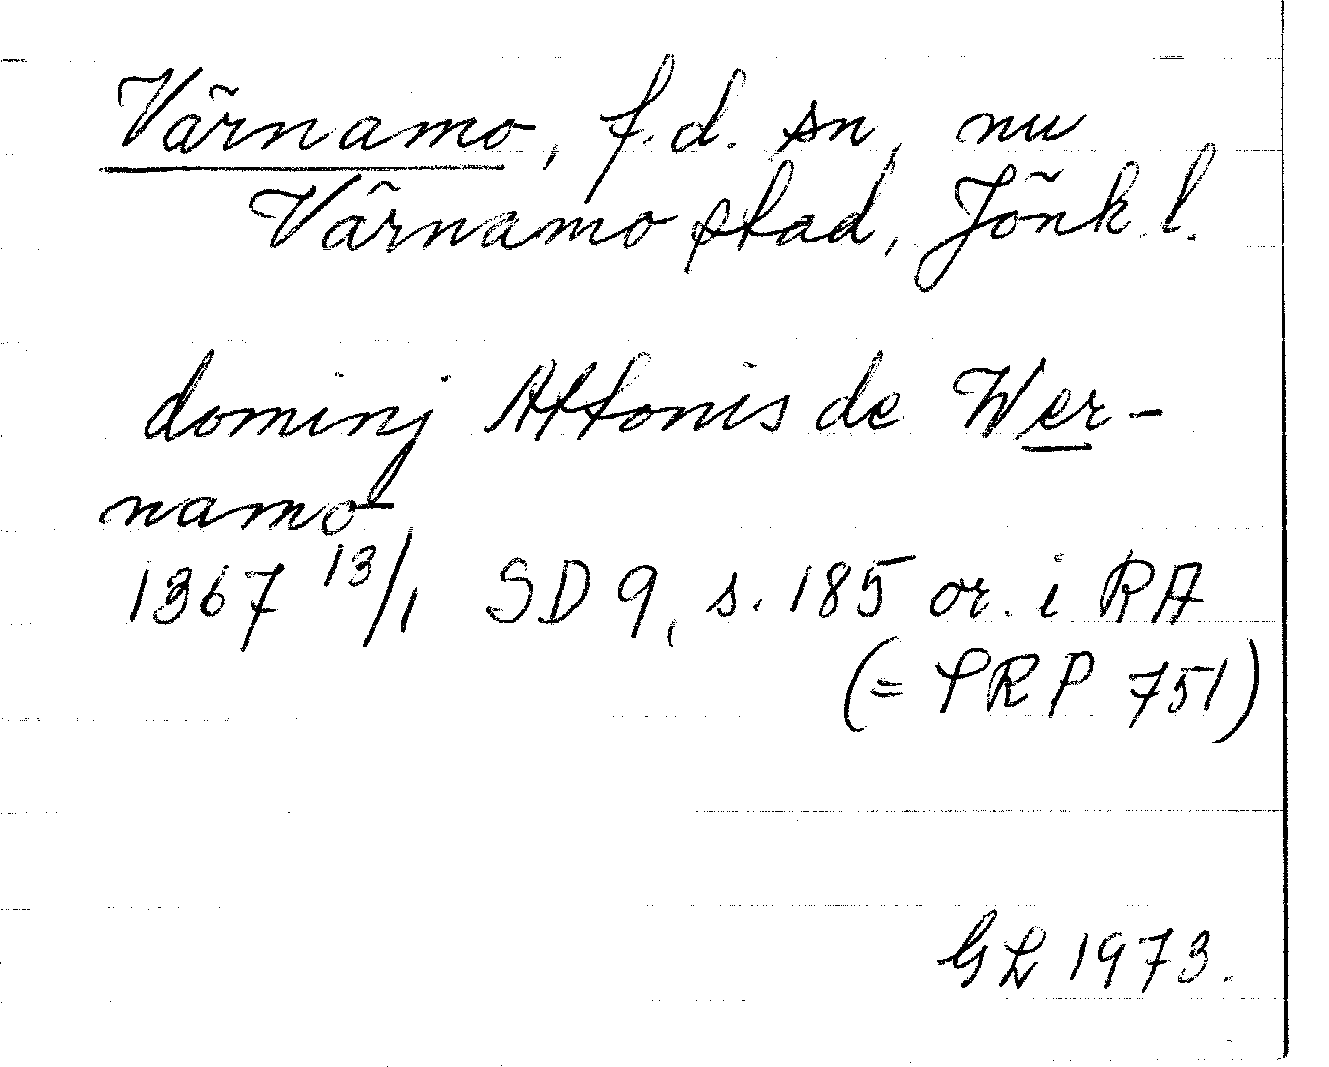 Värnamo, f.d. sn, nu
Värnamo stad, Jönk. l.
dominj Attonis de Wer-
namo
1367 13/1 SD 9, s. 185 or. i RA
(= SRP 751)
GL 1973.